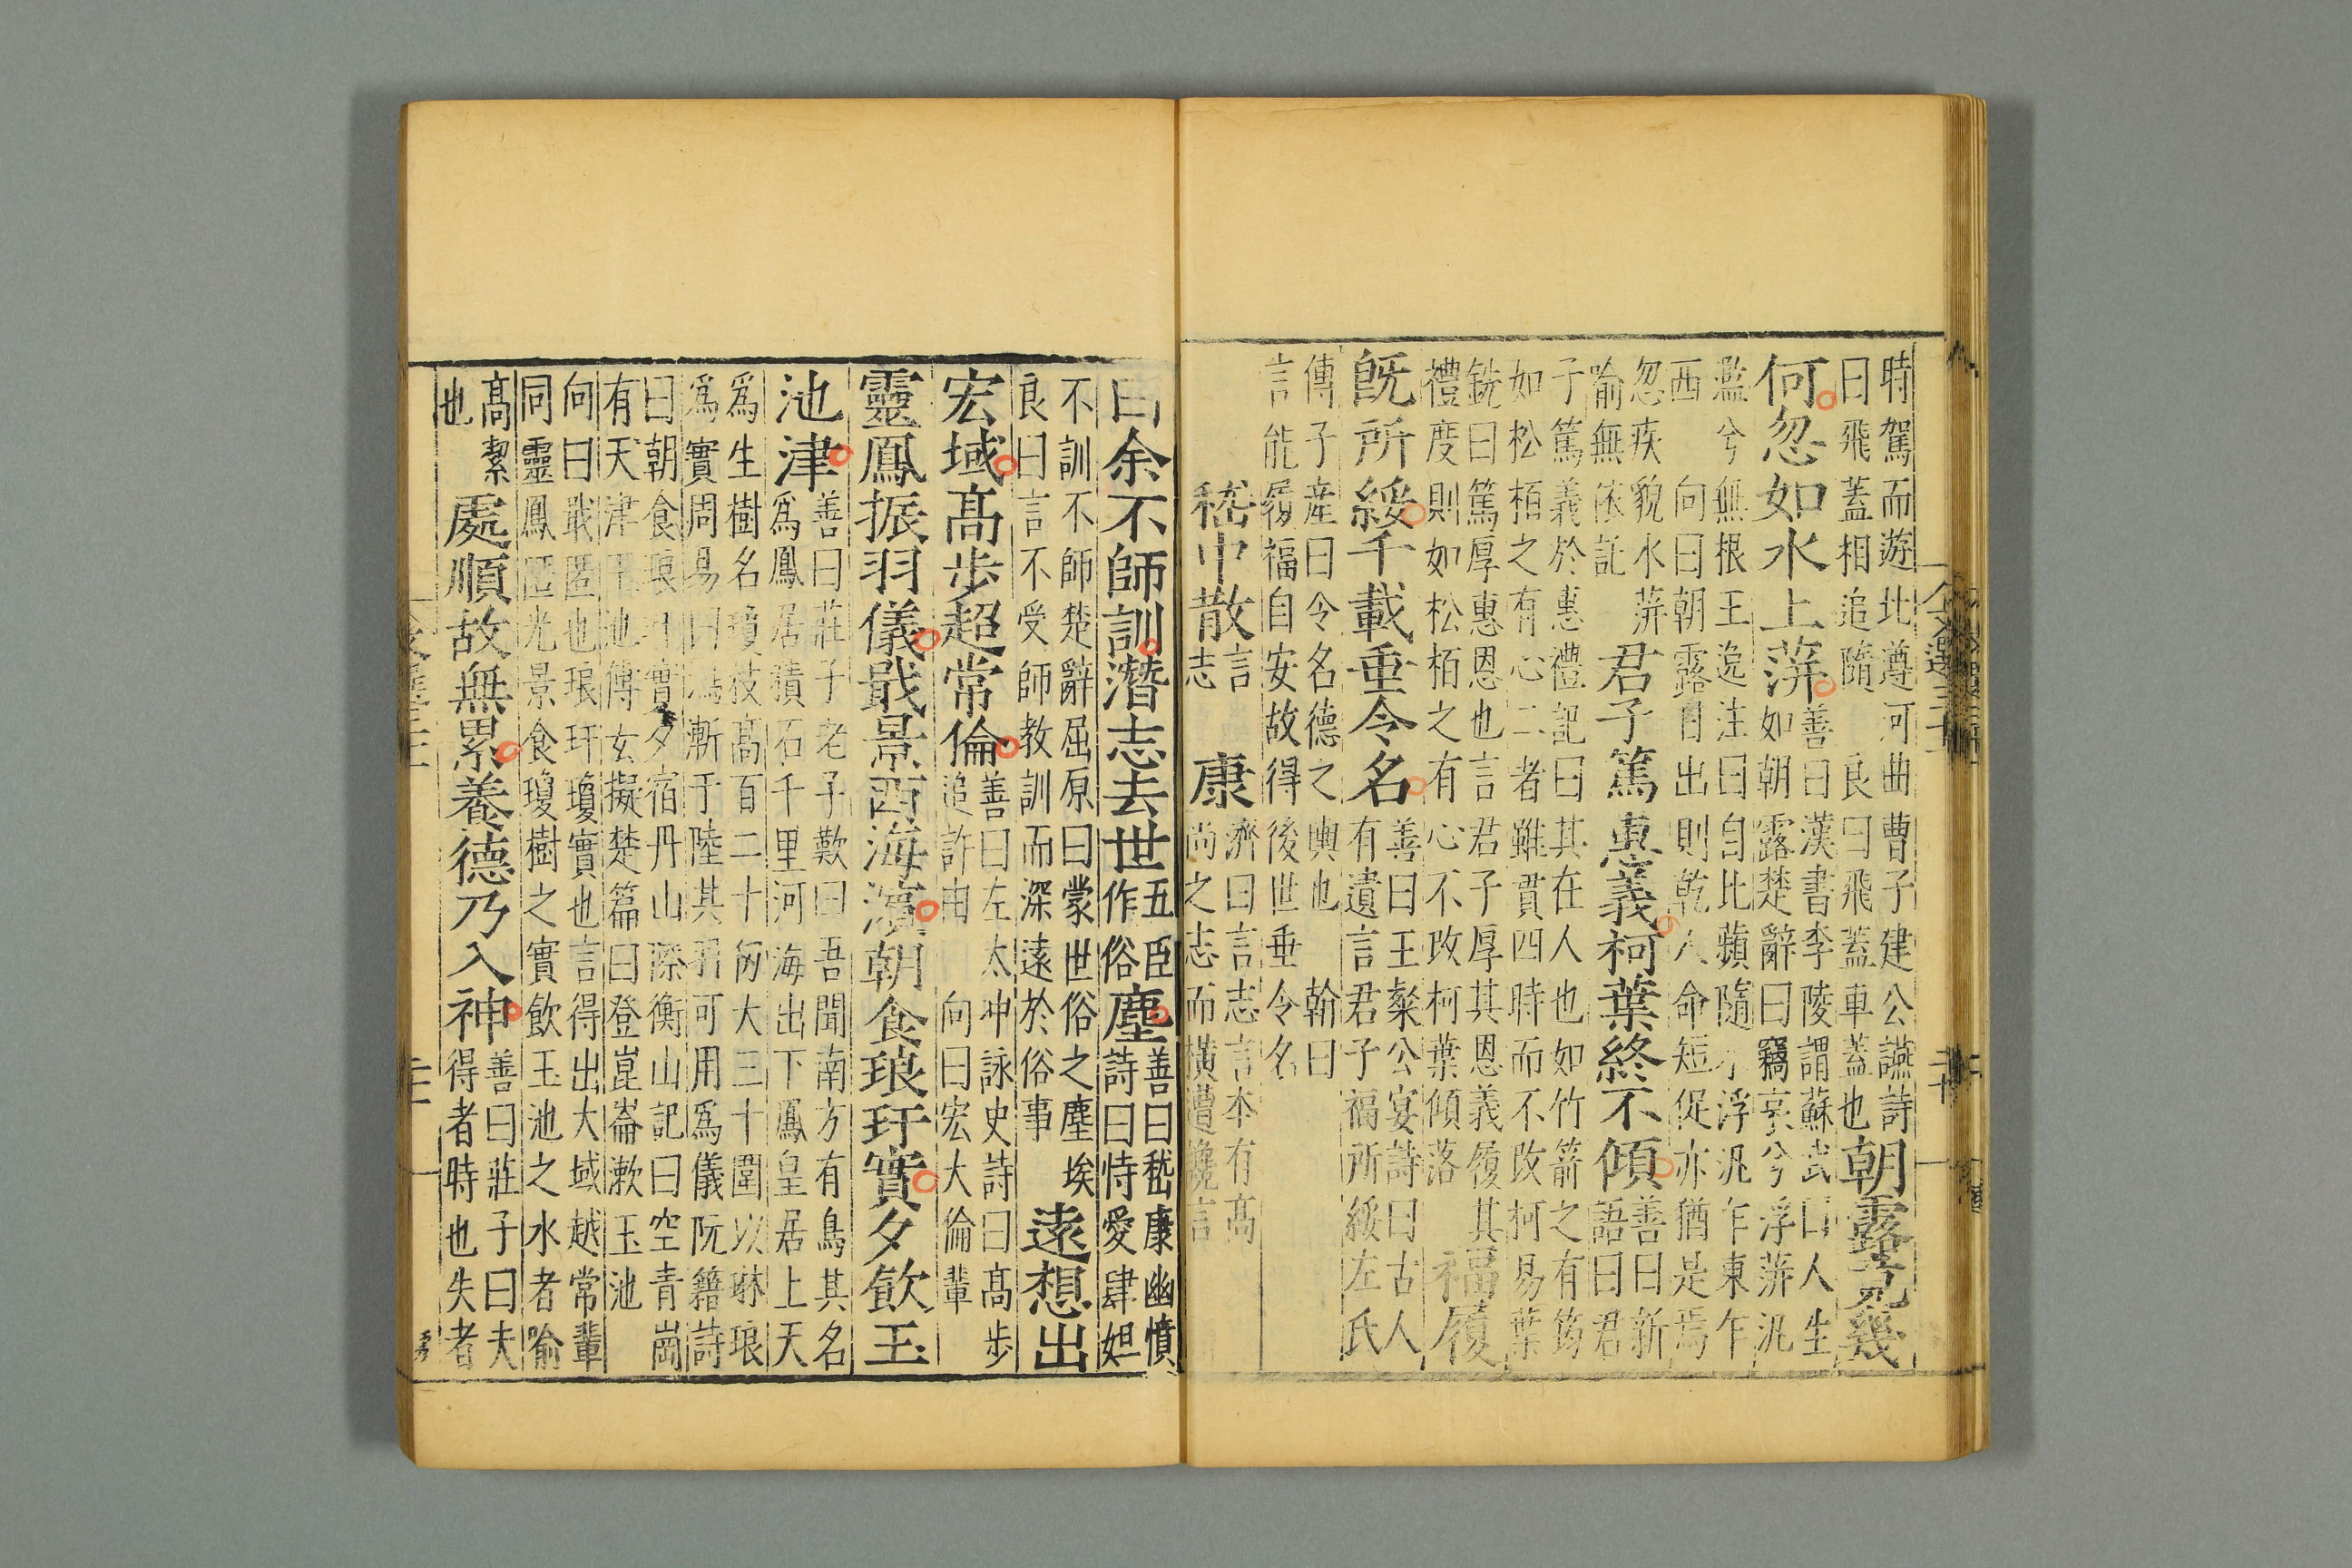 時駕而遊北遵河曲曹子建公讌詩
曰飛蓋相追隨 良曰飛蓋車蓋也
朝露竟幾
何忽如水上萍
善曰漢書李陵謂蘇武曰人生
如朝露楚辭曰竊哀兮浮萍汎
濫兮無根王逸注曰自比蘋隨水浮汎乍東乍
西 向曰朝露日出則乾人命短促亦猶是焉
忽疾貌水萍
喻無依託
君子篤惠義柯葉終不傾
善曰新
語曰君
子篤義於惠禮記曰其在人也如竹箭之有筠
如松栢之有心二者雖貫四時而不改柯易葉
銑曰篤厚惠恩也言君子厚其恩義履其
禮度則如松栢之有心不改柯葉傾落
福履
旣所綏千載垂令名
善曰王粲公宴詩曰古人
有遺言君子福所綏左氏
傳子産曰令名德之輿也 翰曰
言能履福自安故得後世垂令名
嵇中散
言
志
康
濟曰言志言本有高
尚之志而橫遭讒言
曰余不師訓潛志去世
五臣
作俗
塵
善曰嵇康幽憤
詩曰恃愛肆妲
不訓不師楚辭屈原曰蒙世俗之塵埃
良曰言不受師教訓而深遠於俗事
遠想出
宏域高步超常倫
善曰左太冲詠史詩曰高步
追許由 向曰宏大倫輩
靈鳳振羽儀戢景西海濱朝食琅玕實夕飲玉
池津
善曰莊子老子歎曰吾聞南方有鳥其名
爲鳳居積石千里河海出下鳳皇居上天
爲生樹名瓊枝高百二十仞大三十圍以琳琅
爲實周易曰鴻漸于陸其羽可用爲儀阮籍詩
曰朝食琅玕實夕宿丹山際衡山記曰空青崗
有天津玉池傅玄擬楚篇曰登崑崙漱玉池
向曰戢匿也琅玕瓊實也言得出大域越常輩
同靈鳳匿光景食瓊樹之實飲玉池之水者喻
高絜
也
處順故無累養德乃入神
善曰莊子曰夫
得者時也失者